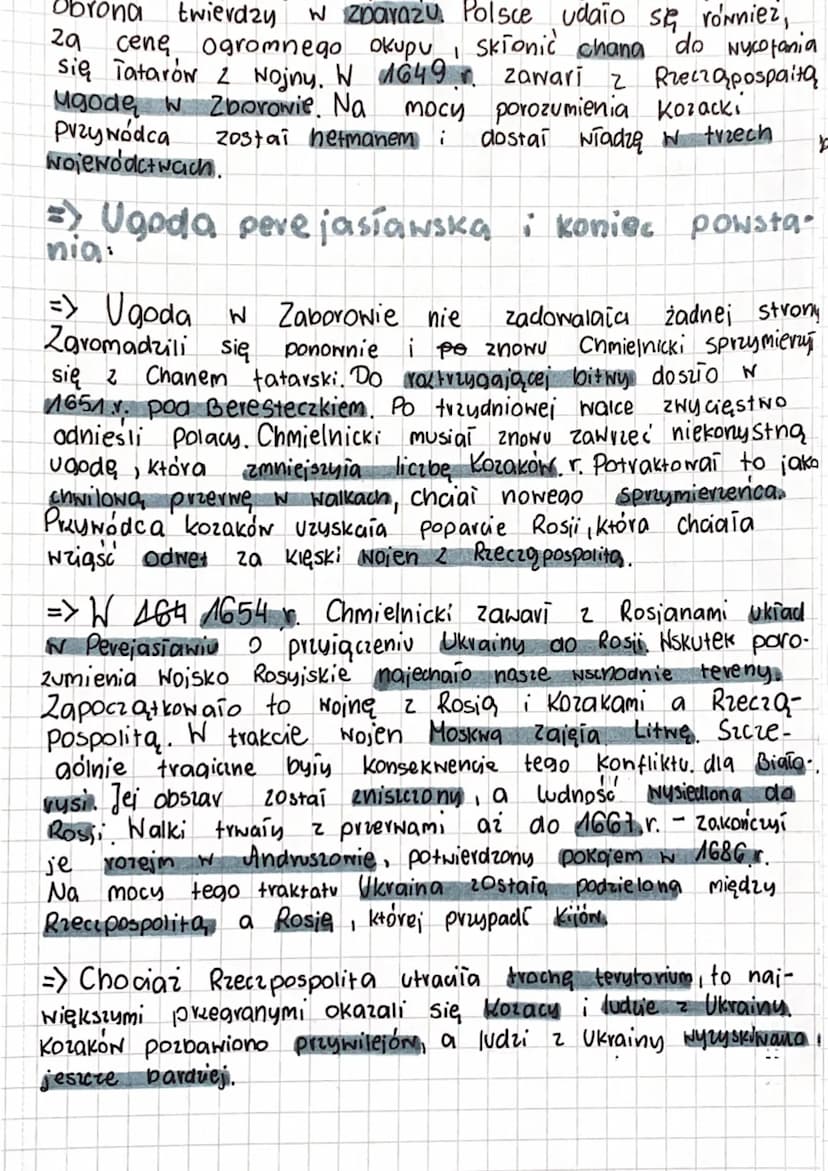 Obrona twierdzy w Zbarażu. Polsce udało się również,
za cenę ogromnego okupu, skłonić chana do wycofania
się Tatarów z wojny. W 1649 r. zawarł z Rzecząpospolitą
ugodę w Zborowie. Na mocy porozumienia kozacki
przywódca został hetmanem i dostał władzę w trzech
województwach.
=> Ugoda perejasławska i koniec powsta-
nia:
=> Ugoda w Zaborowie nie zadowalała żadnej strony
Zgromadzili się ponownie i po znowu Chmielnicki sprzymierzył
się z Chanem tatarski. Do rozstrzygającej bitwy doszło w
1651 r. pod Beresteczkiem. Po trzydniowej walce zwycięstwo
odnieśli Polacy. Chmielnicki musiał znowu zawrzeć niekorzystną
ugodę, która zmniejszyła liczbę Kozaków. r. Potraktował to jako
chwilową przerwę w walkach, chciał nowego sprzymierzeńca.
Przywódca kozaków uzyskała poparcie Rosji, która chciała
wziąść odwet za klęski wojen z Rzecząpospolitą.
=> W 164 1654 r. Chmielnicki zawarł z Rosjanami układ
w Perejasławiu o przyłączeniu Ukrainy do Rosji. Wskutek poro-
zumienia Wojsko Rosyjskie najechało nasze wschodnie tereny.
Zapoczątkowało to wojnę z Rosją i Kozakami a Rzeczą-
pospolitą. W trakcie wojen Moskwa zajęła Litwę. Szcze-
gólnie tragiczne były konsekwencje tego konfliktu. dla Biało-
rusi. Jej obszar został zniszczony, a ludność wysiedlona do
Rosji. Walki trwały z przerwami aż do 1667 r. - zakończył
je rozejm w Andruszowie, potwierdzony pokojem w 1686 r.
Na mocy tego traktatu Ukraina została podzielona między
Rzeczpospolitą a Rosję, której przypadł Kijów.
=> Chociaż Rzeczpospolita utraciła trochę terytorium, to naj-
większymi przegranymi okazali się Kozacy i ludzie z Ukrainy.
Kozaków pozbawiono przywilejów, a ludzi z Ukrainy wyzyskiwano
jeszcze bardziej.